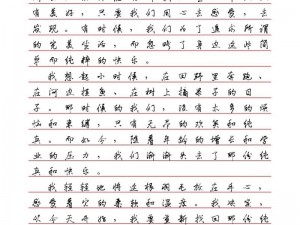 有美好，只要我们用心去感受，去
发现。有时候，我们为了追求所谓
的完美生活，而忽略了身边这些简
单而纯粹的快乐。
我想起小时候，在田野里奔跑，
在河边摸鱼，在树上摘果子的日
子。那时候的我们，没有太多的烦
恼和束缚，只有无尽的欢笑和纯
真。而如今，随着年龄的增长和学
业的压力，我们渐渐失去了那份纯
真和快乐。
我轻轻地将这根羽毛放在手心，
感受着它的柔软和温度。我决定，
从今天开始，我要重新找回那份纯